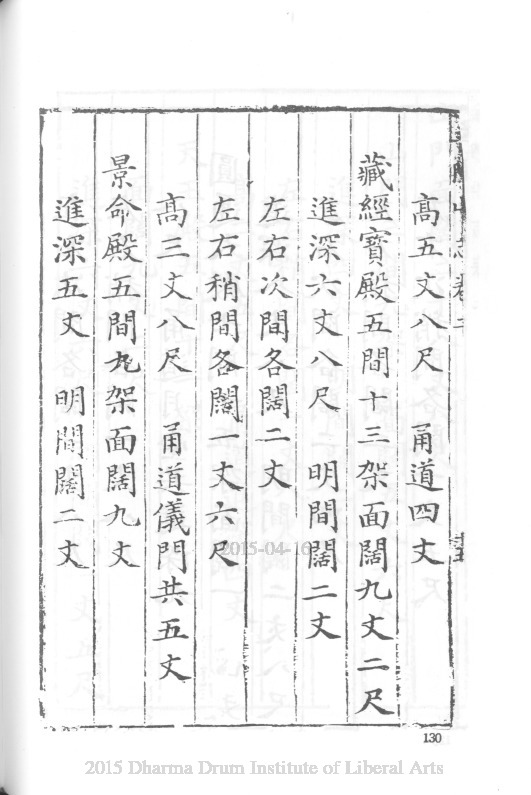 高五丈八尺 甬道四丈
藏經寶殿五間十三架面闊九丈二尺
進深六丈八尺 明間闊二丈
左右次間各闊二丈
左右稍間各闊一丈六尺
高三丈八尺 甬道儀門共五丈
景命殿五間九架面闊九丈
進深五丈 明間闊二丈
2015-04-16
130
2015 Dharma Drum Institute of Liberal Arts